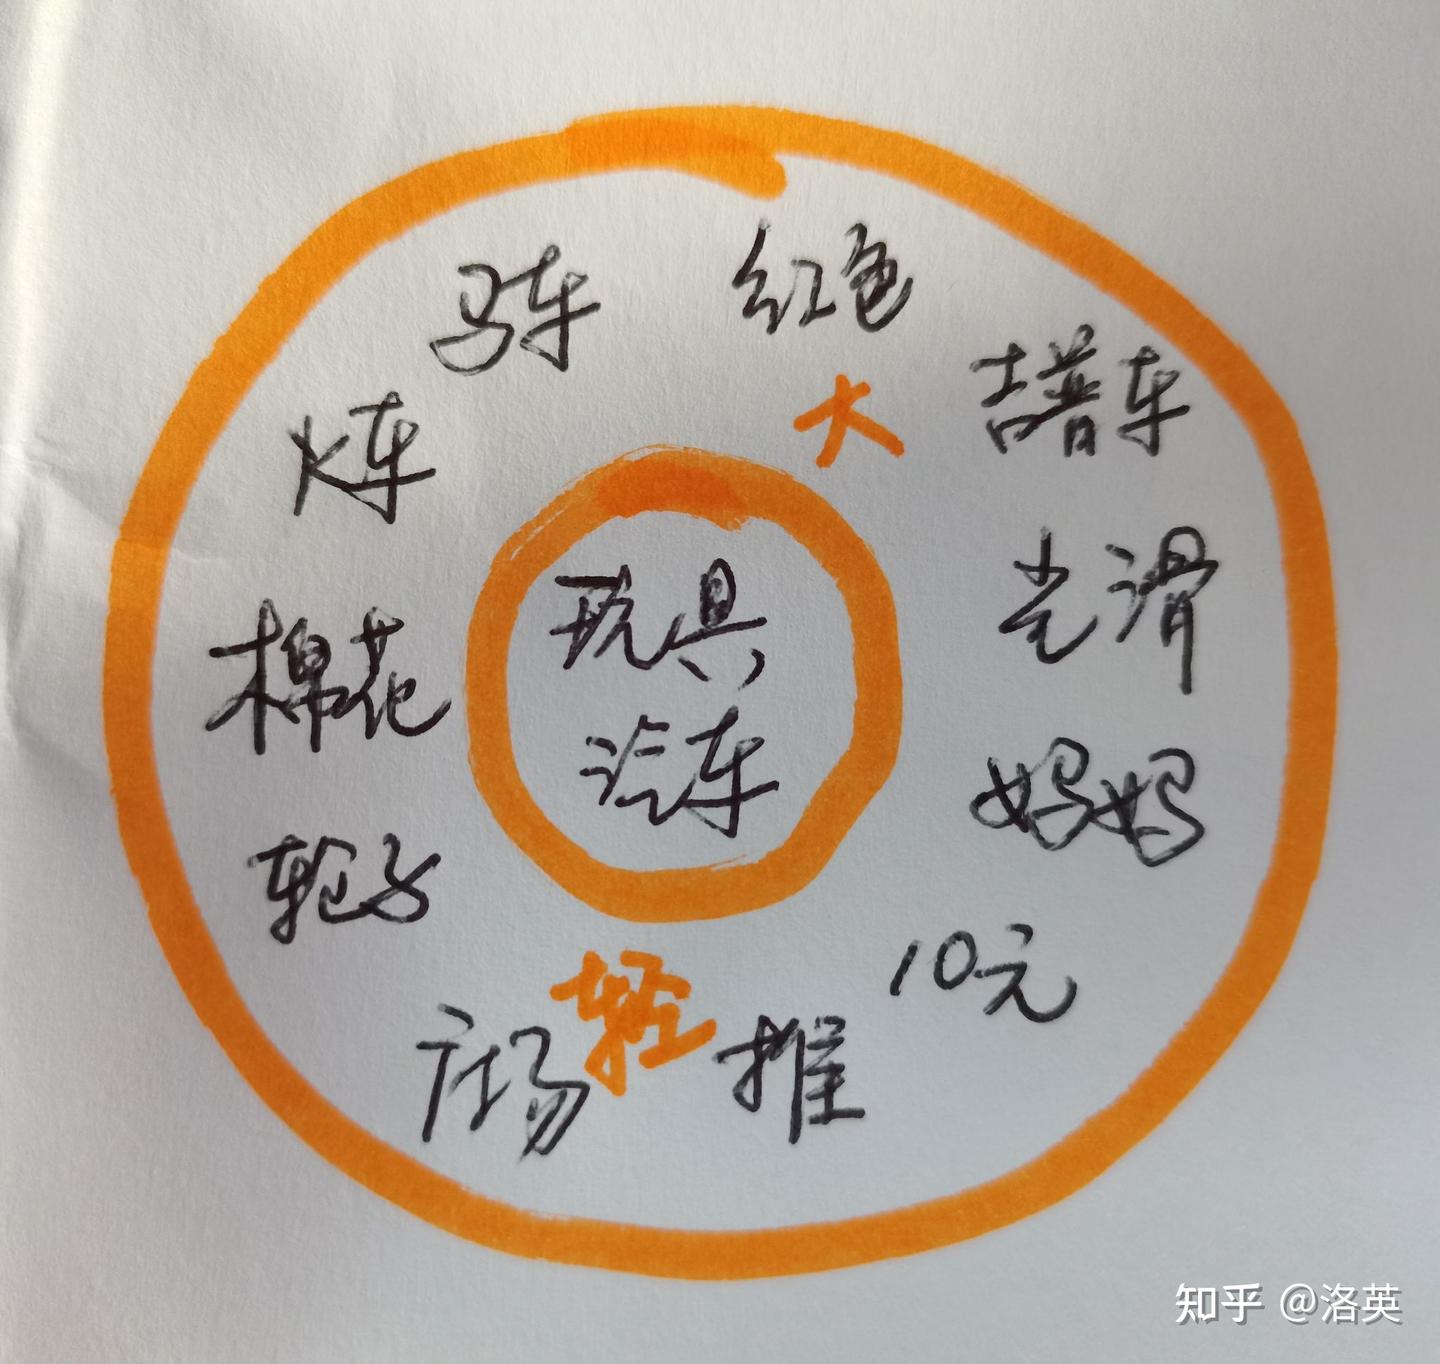 马车
红色
大
吉普车
火车
光滑
棉花
玩具
汽车
妈妈
轮子
10元
轻
广场
推
知乎 @洛英